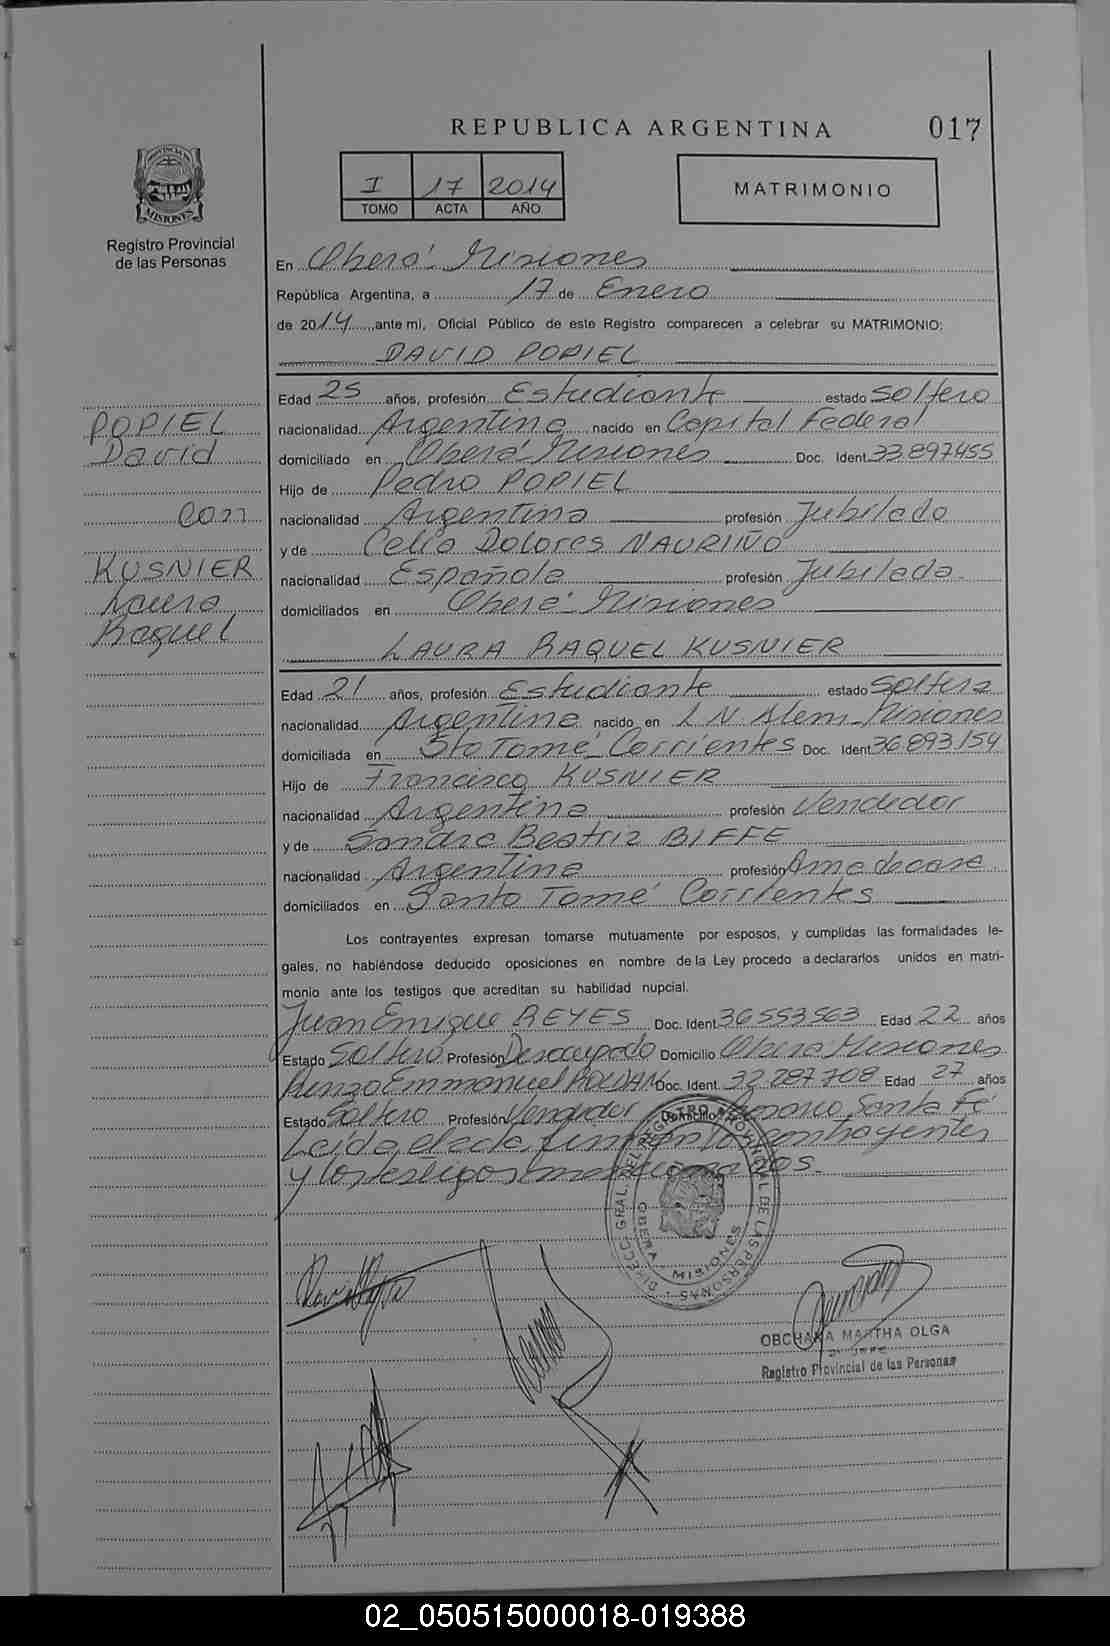 REPUBLICA ARGENTINA
017
I 17 2014
TOMO ACTA AÑO
MATRIMONIO
PROVINCIA DE
MISIONES
Registro Provincial
de las Personas
POPIEL
David
con
KUSNIER
Laura
Raquel
En Oberá - Misiones
República Argentina, a 17 de Enero
de 2014, ante mi, Oficial Público de este Registro comparecen a celebrar su MATRIMONIO:
DAVID POPIEL
Edad 25 años, profesión Estudiante estado Soltero
nacionalidad Argentina nacido en Capital Federal
domiciliado en Oberá - Misiones Doc. Ident. 33.897.455
Hijo de Pedro POPIEL
nacionalidad Argentina profesión Jubilado
y de Celia Dolores NAURIÑO
nacionalidad Española profesión Jubilada
domiciliados en Oberá - Misiones
LAURA RAQUEL KUSNIER
Edad 21 años, profesión Estudiante estado Soltera
nacionalidad Argentina nacido en L N Alem - Misiones
domiciliada en Sto Tomé Corrientes Doc. Ident 36.893.154
Hijo de Francisco KUSNIER
nacionalidad Argentina profesión Vendedor
y de Sandra Beatriz BIFFE
nacionalidad Argentina profesión Ama de casa
domiciliados en Santo Tomé Corrientes
Los contrayentes expresan tomarse mutuamente por esposos, y cumplidas las formalidades le-
gales, no habiéndose deducido oposiciones en nombre de la Ley procedo a declararlos unidos en matri-
monio ante los testigos que acreditan su habilidad nupcial.
Juan Enrique REYES Doc. Ident 36553563 Edad 22 años
Estado Soltero Profesión Desocupado Domicilio Oberá Misiones
Renzo Emmanuel ROLDAN Doc. Ident. 32 287 708 Edad 27 años
Estado Soltero Profesión Vendedor Domicilio Rosario Santa Fé
Leida el acta, firman los contrayentes
y los testigos mencionados.
DIRECC. GRAL. DEL REGISTRO PROVINCIAL DE LAS PERSONAS
OBERA MISIONES
OBCHANA MARTHA OLGA
Registro Provincial de las Personas
02_050515000018-019388